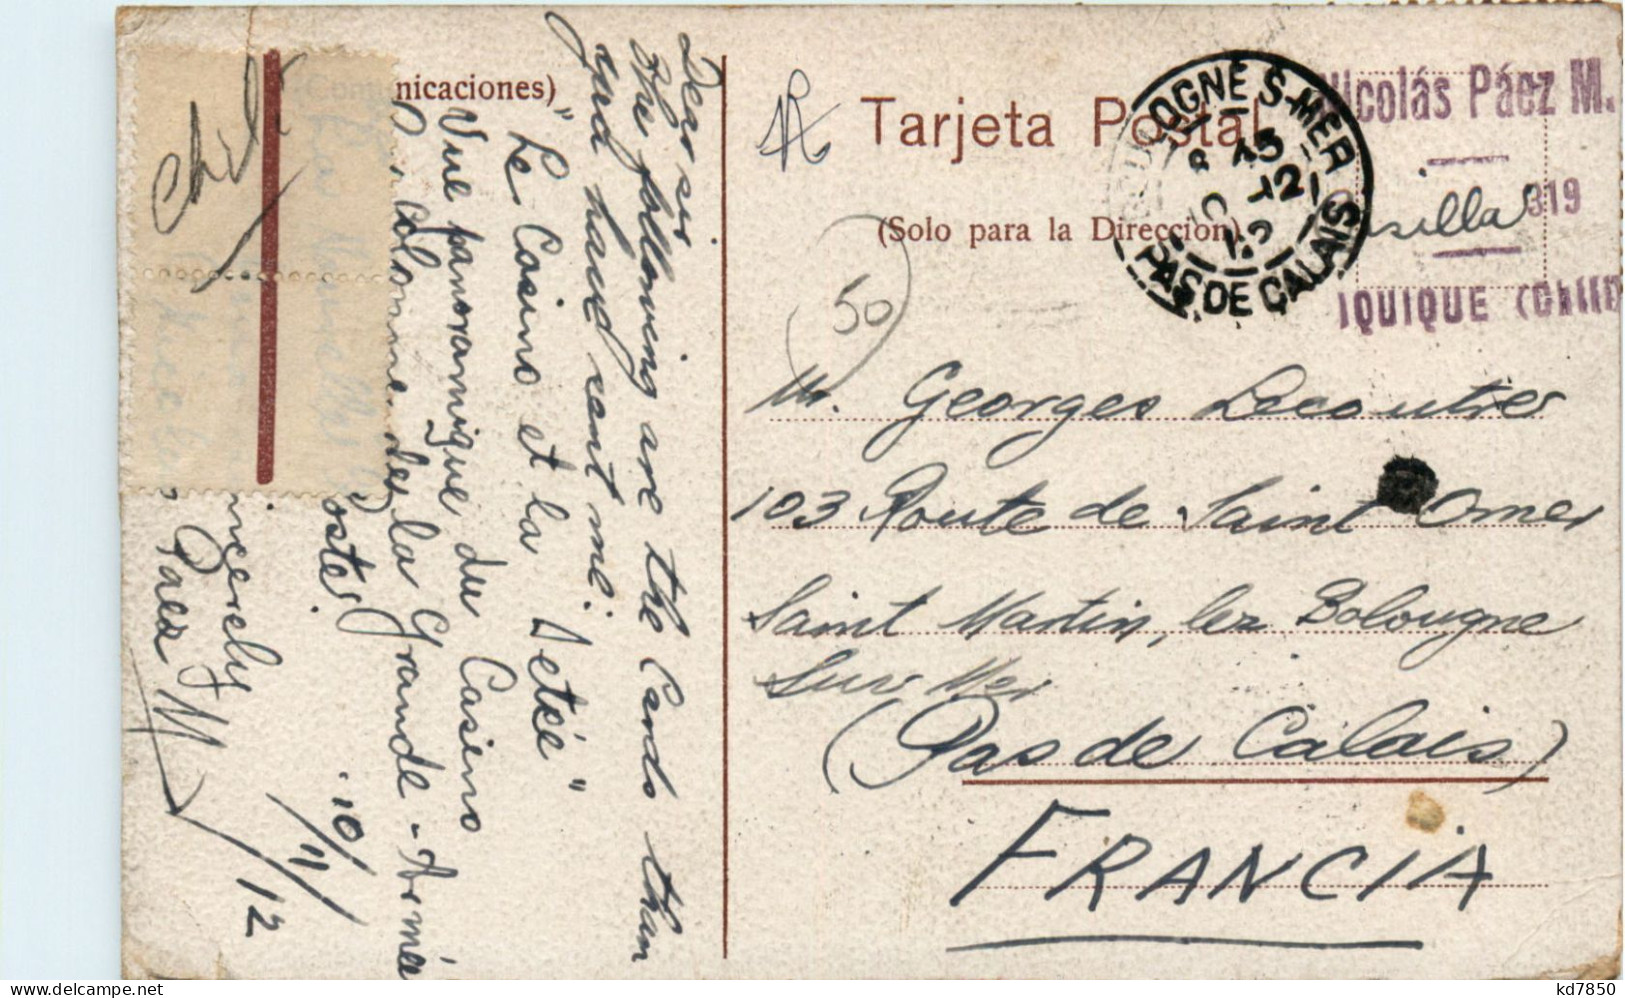 (Comunicaciones)
Chili
Dear sir
The following are the Cards than
you have sent me:
"Le Casino et la Jeteé"
Vue panoramique du Casino
Colonne des la Grande-Armée
Poster
Sincerely
Paez M
10/11/12
Tarjeta Postal
(Solo para la Direccion)
BOULOGNE S-MER
PAS DE CALAIS
Nicolás Páez M.
Casilla 319
IQUIQUE (Chili)
50
Mr. Georges Lecoutre
103 Route de Saint Omer
Saint Martin, lez Bolougne
Sur Mer
(Pas de Calais)
FRANCIA
kd7850